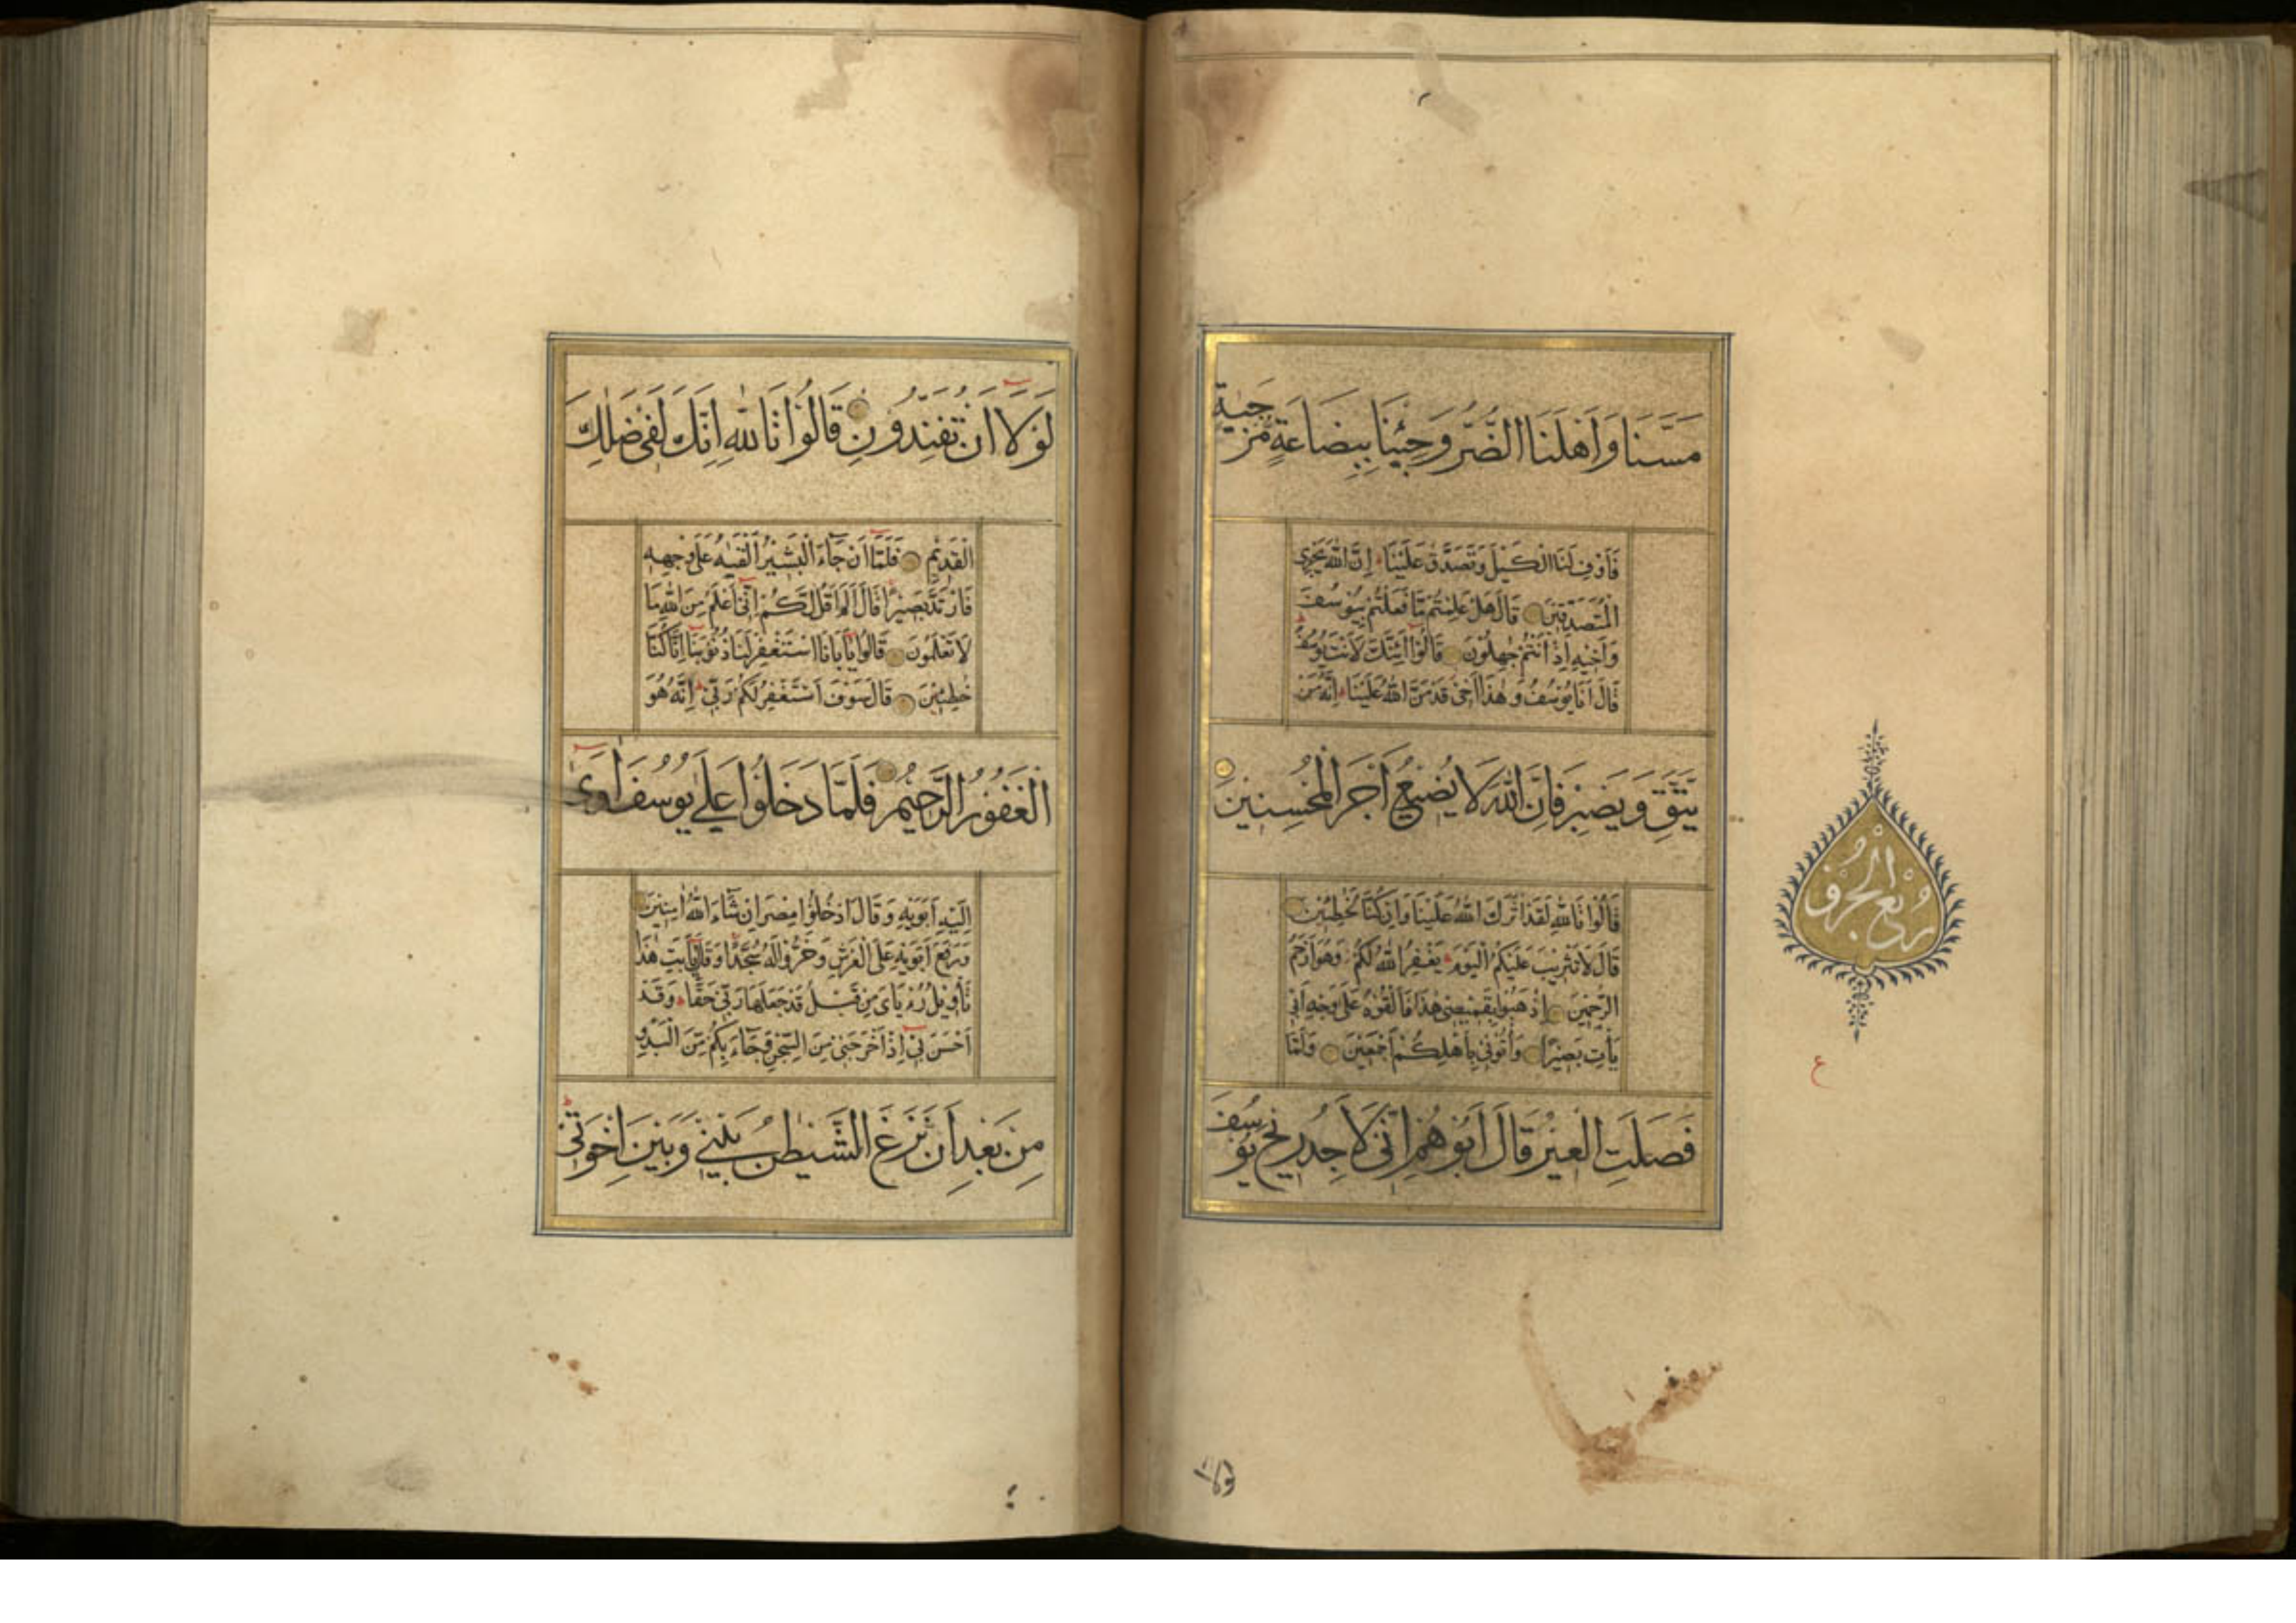 مَسَّنَا وَاَهْلَنَا الضُّرُّ وَجِئْنَا بِبِضَاعَةٍ مُزْجٰيةٍ
فَاَوْفِ لَنَا الْكَيْلَ وَتَصَدَّقْ عَلَيْنَا اِنَّ اللّٰهَ يَجْزِى
الْمُتَصَدِّقِينَ قَالَ هَلْ عَلِمْتُمْ مَا فَعَلْتُمْ بِيُوسُفَ
وَاَخِيهِ اِذْ اَنْتُمْ جٰهِلُونَ قَالُوا اَئِنَّكَ لَاَنْتَ يُوسُفُ
قَالَ اَنَا يُوسُفُ وَهٰذَا اَخِى قَدْ مَنَّ اللّٰهُ عَلَيْنَا اِنَّهُ مَنْ
يَتَّقِ وَيَصْبِرْ فَاِنَّ اللّٰهَ لَا يُضِيعُ اَجْرَ الْمُحْسِنِينَ
قَالُوا تَاللّٰهِ لَقَدْ اٰثَرَكَ اللّٰهُ عَلَيْنَا وَاِنْ كُنَّا لَخٰطِئِينَ
قَالَ لَا تَثْرِيبَ عَلَيْكُمُ الْيَوْمَ يَغْفِرُ اللّٰهُ لَكُمْ وَهُوَ اَرْحَمُ
الرّٰحِمِينَ اِذْهَبُوا بِقَمِيصِى هٰذَا فَاَلْقُوهُ عَلٰى وَجْهِ اَبِى
يَأْتِ بَصِيرًا وَأْتُونِى بِاَهْلِكُمْ اَجْمَعِينَ وَلَمَّا
فَصَلَتِ الْعِيرُ قَالَ اَبُوهُمْ اِنِّى لَاَجِدُ رِيحَ يُوسُفَ
رُبْع الْحِزْب
لولا
لَوْلَا اَنْ تُفَنِّدُونِ قَالُوا تَاللّٰهِ اِنَّكَ لَفِى ضَلٰلِكَ
الْقَدِيمِ فَلَمَّا اَنْ جَاءَ الْبَشِيرُ اَلْقٰيهُ عَلٰى وَجْهِهِ
فَارْتَدَّ بَصِيرًا قَالَ اَلَمْ اَقُلْ لَكُمْ اِنِّى اَعْلَمُ مِنَ اللّٰهِ مَا
لَا تَعْلَمُونَ قَالُوا يَا اَبَانَا اسْتَغْفِرْ لَنَا ذُنُوبَنَا اِنَّا كُنَّا
خٰطِئِينَ قَالَ سَوْفَ اَسْتَغْفِرُ لَكُمْ رَبِّى اِنَّهُ هُوَ
الْغَفُورُ الرَّحِيمُ فَلَمَّا دَخَلُوا عَلٰى يُوسُفَ اٰوٰى
اِلَيْهِ اَبَوَيْهِ وَقَالَ ادْخُلُوا مِصْرَ اِنْ شَاءَ اللّٰهُ اٰمِنِينَ
وَرَفَعَ اَبَوَيْهِ عَلَى الْعَرْشِ وَخَرُّوا لَهُ سُجَّدًا وَقَالَ يَا اَبَتِ هٰذَا
تَأْوِيلُ رُءْيَاىَ مِنْ قَبْلُ قَدْ جَعَلَهَا رَبِّى حَقًّا وَقَدْ
اَحْسَنَ بِى اِذْ اَخْرَجَنِى مِنَ السِّجْنِ وَجَاءَ بِكُمْ مِنَ الْبَدْوِ
مِنْ بَعْدِ اَنْ نَزَغَ الشَّيْطٰنُ بَيْنِى وَبَيْنَ اِخْوَتِى